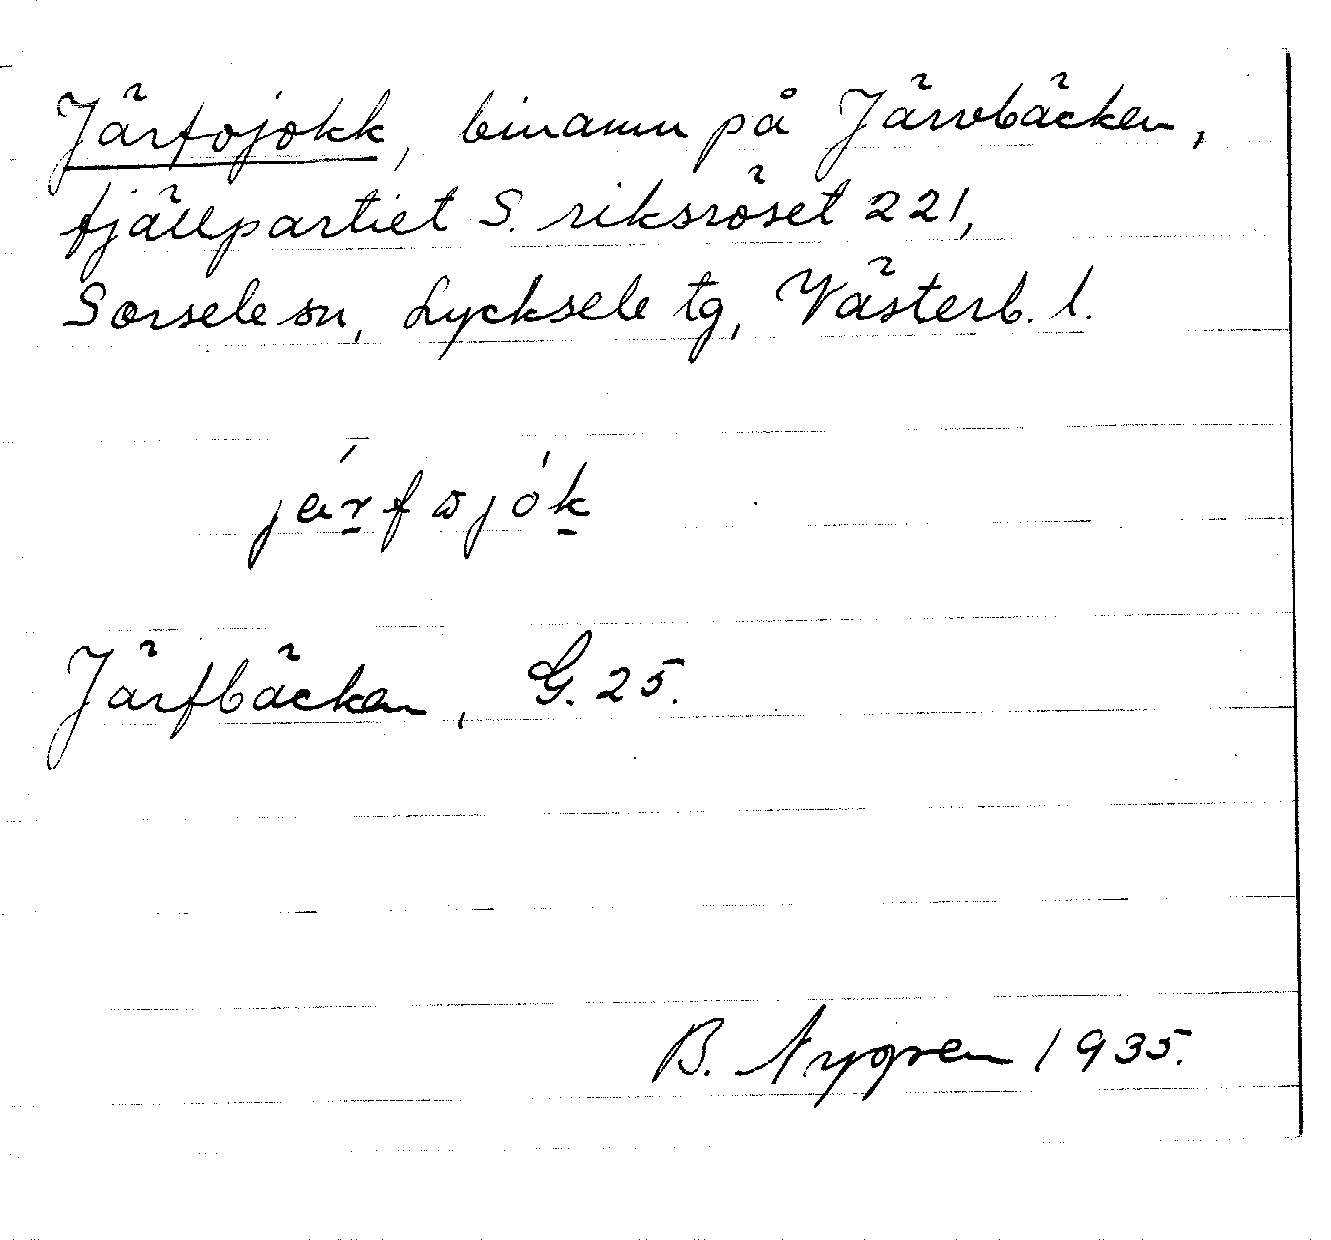 Järfojokk, binamn på Järvbäcken,
fjällpartiet S. riksröset 221,
Sorsele sn, Lycksele tg, Västerb. l.
járfωjók
Järfbäcken, G. 25.
B. Nygren 1935.